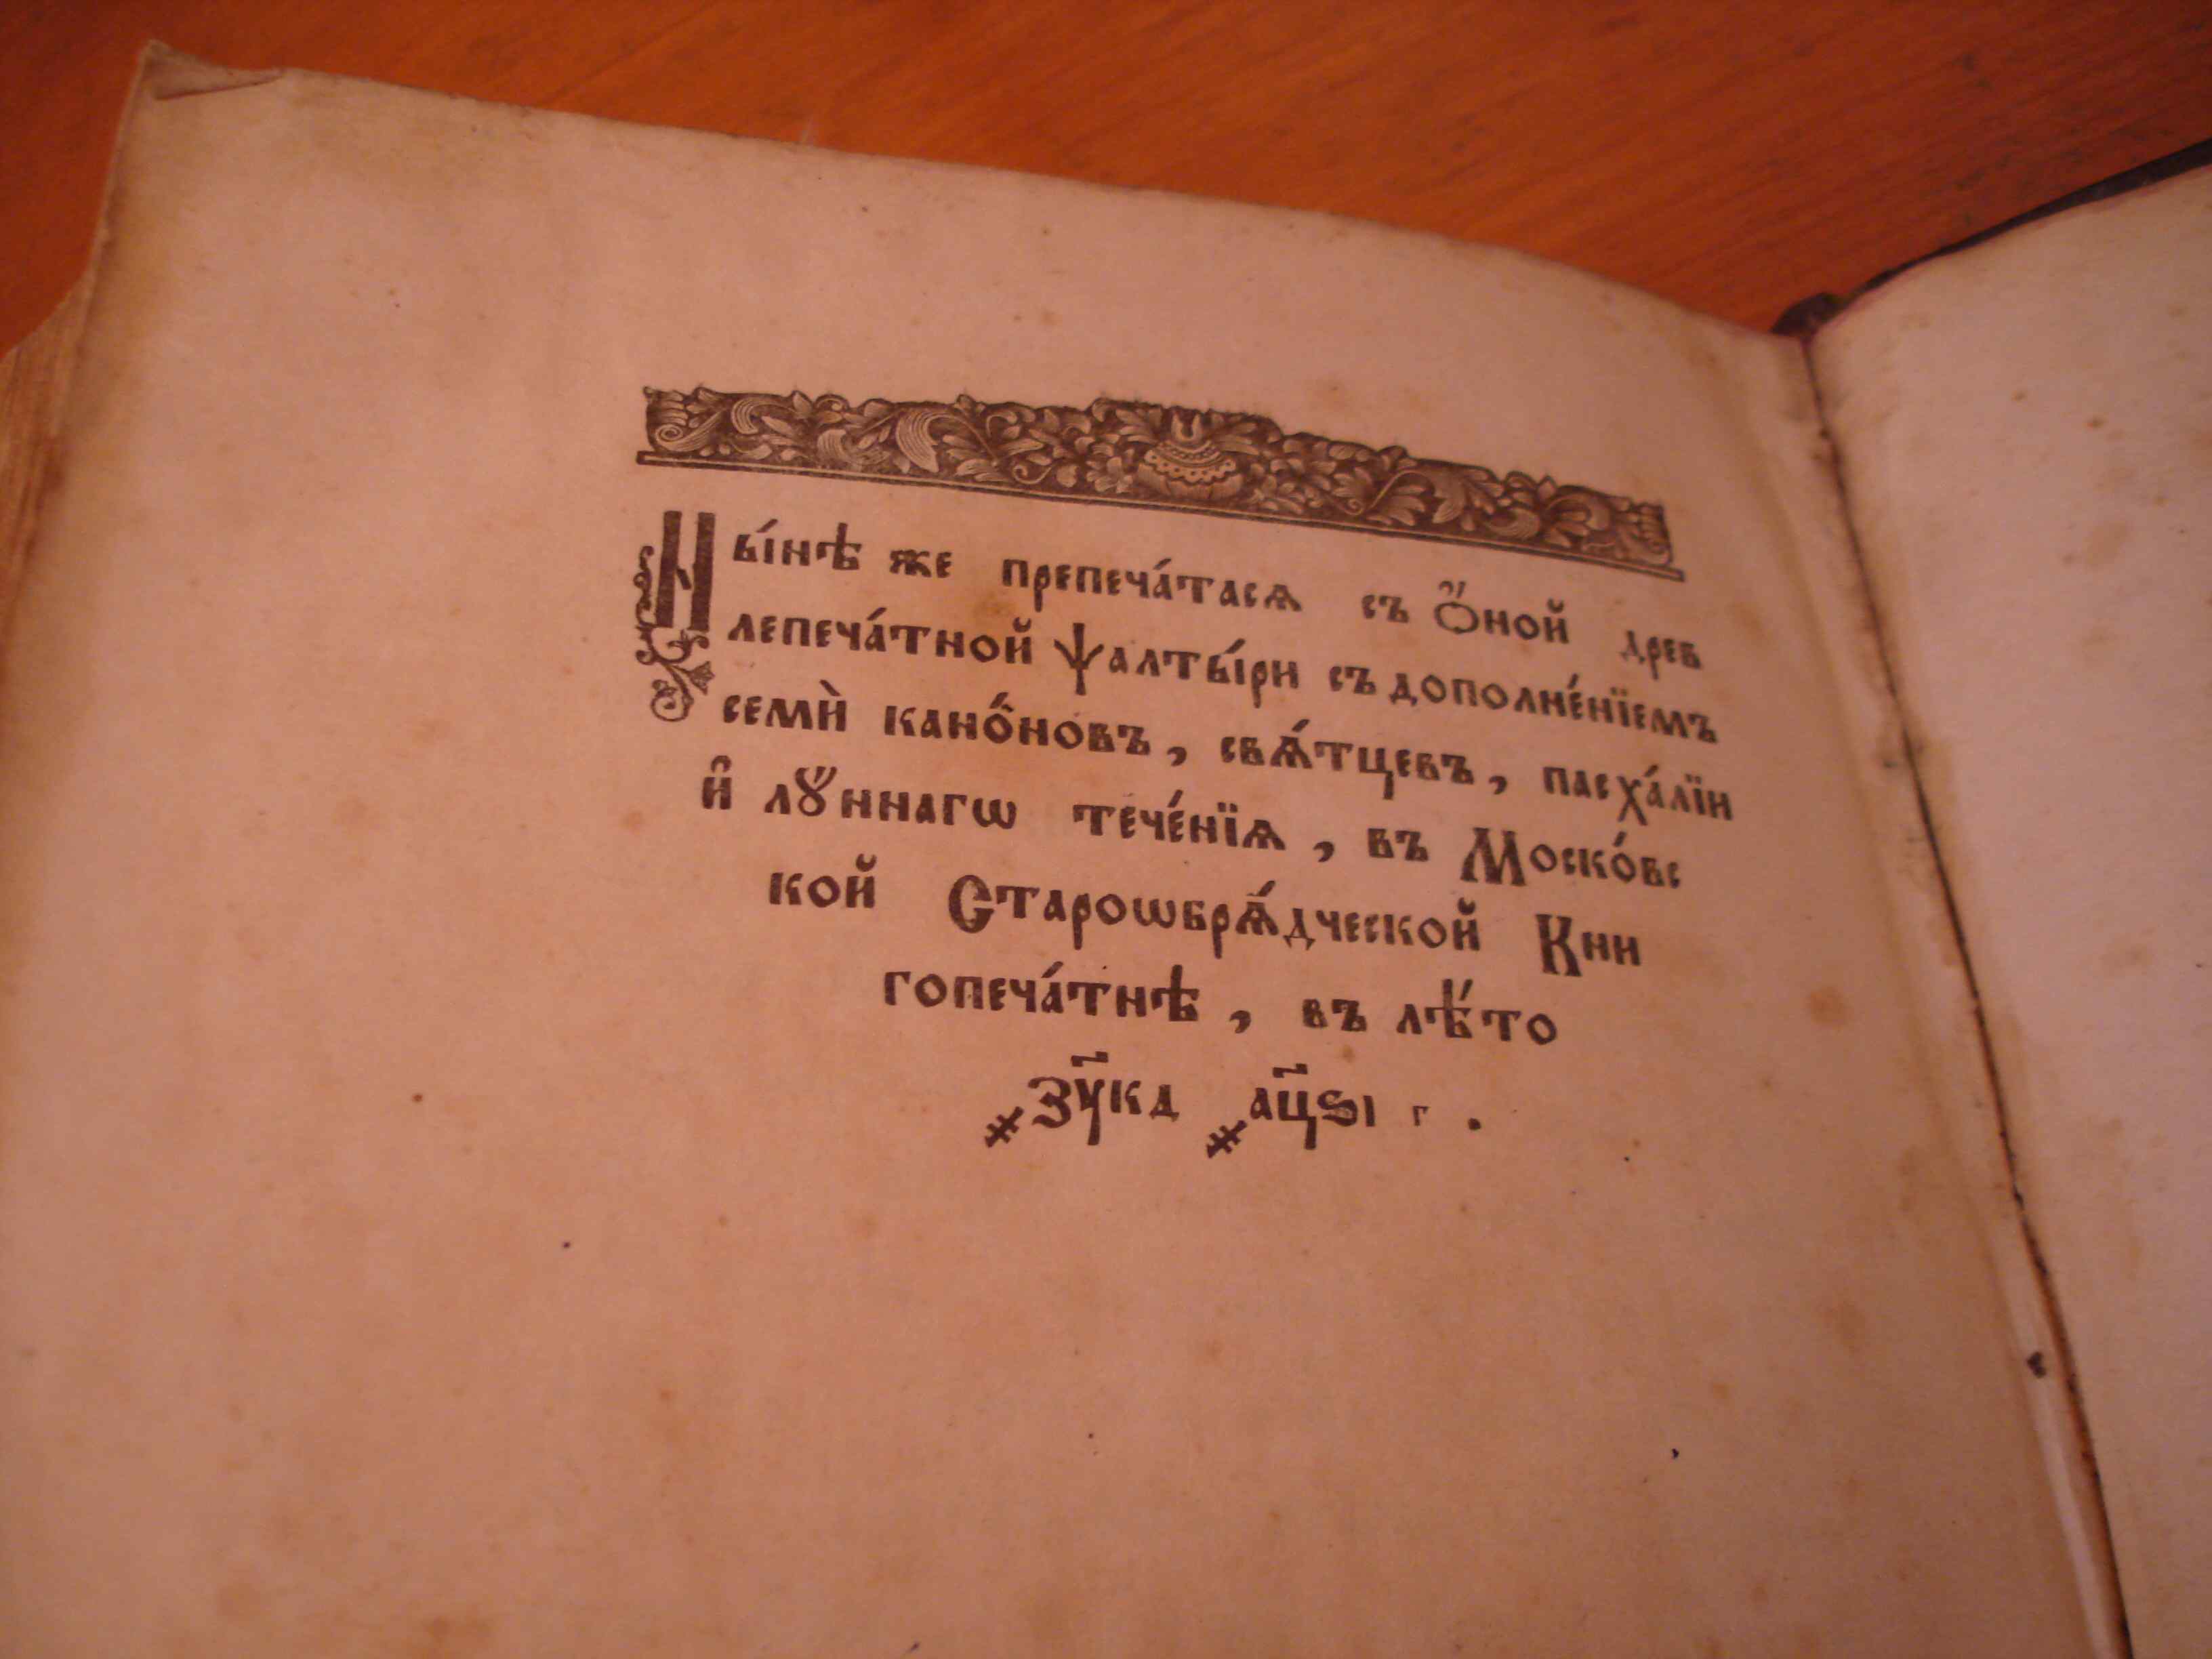 Ны́нѣ же препеча́тасѧ съ Ѻ҆́ной древ
лепеча́тной Ѱалты́ри съ дополне́нїемъ
семѝ кано́новъ, свѧ́тцевъ, пасха́лїи
и҆ лꙋ́ннагѡ тече́нїѧ, въ Моско́вс
кой Староѡбрѧ́дческой Кни
гопеча́тнѣ, въ лѣ́то
҂зу҃кд ҂ац҃ѕі г .